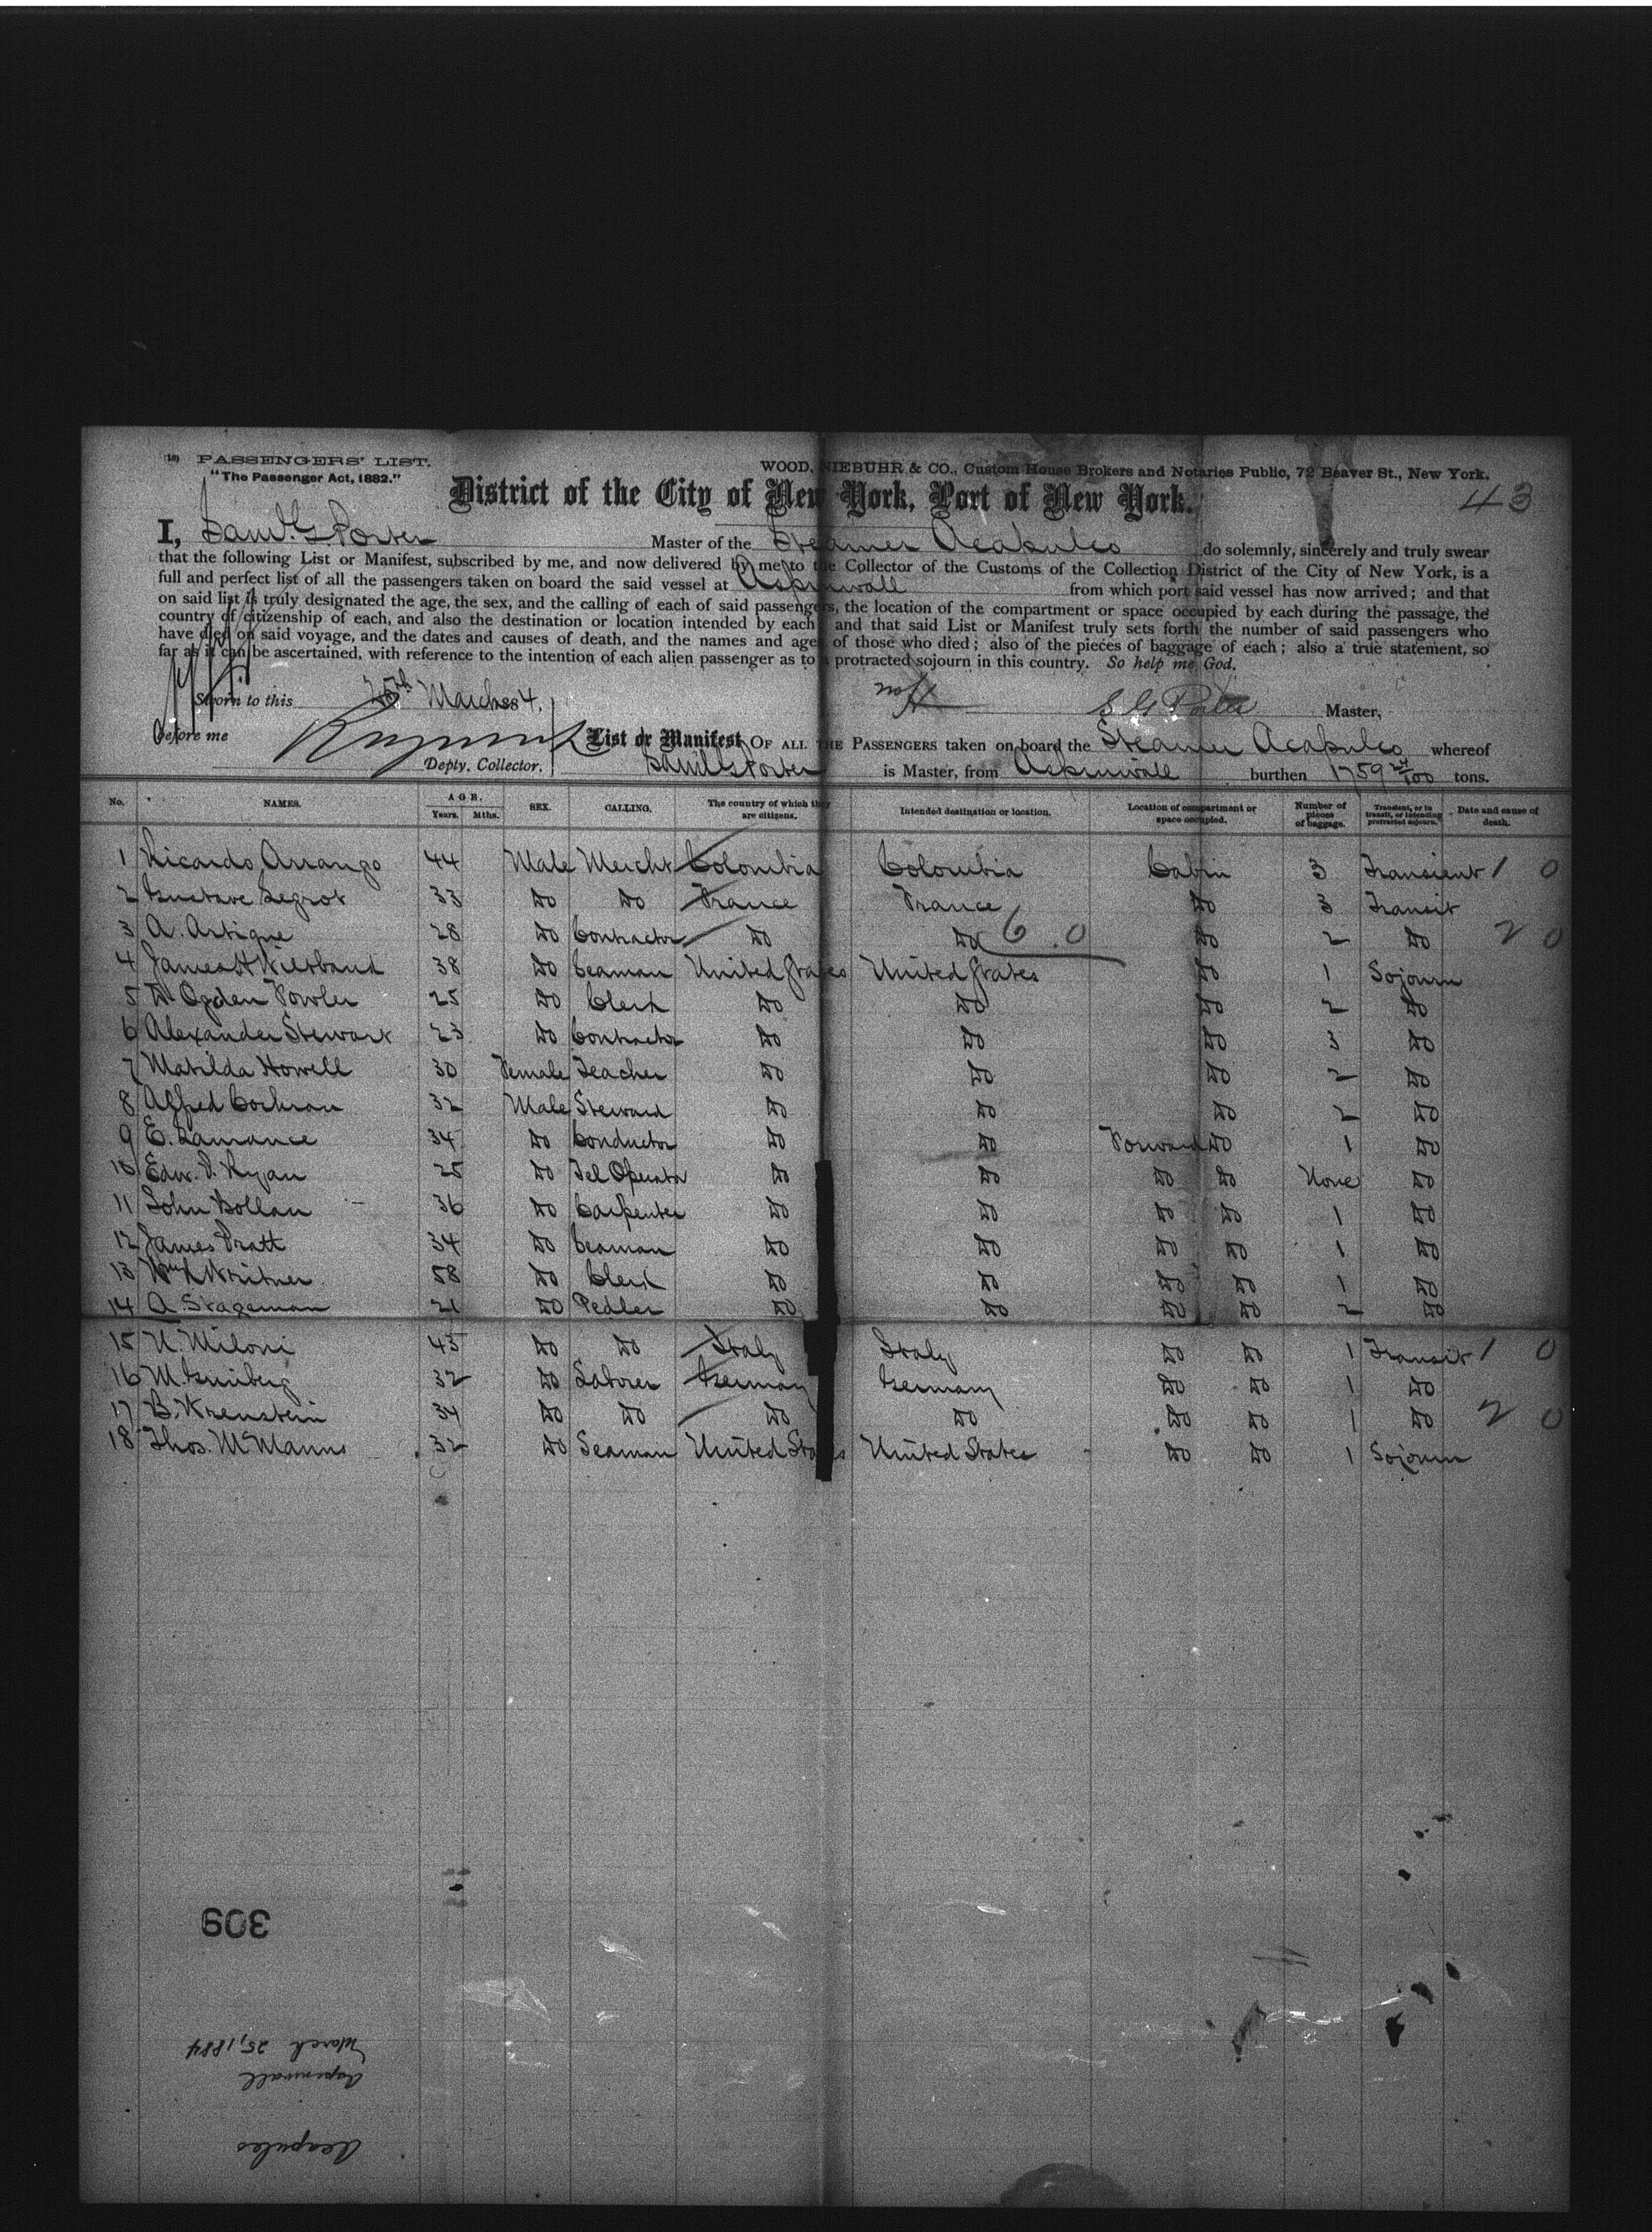 (18) PASSENGERS' LIST.
"The Passenger Act, 1882."
WOOD, NIEBUHR & CO., Custom House Brokers and Notaries Public, 72 Beaver St., New York.
District of the City of New York, Port of New York.
43
I, Saml. G. Porter Master of the Steamer Acapulco do solemnly, sincerely and truly swear
that the following List or Manifest, subscribed by me, and now delivered by me to the Collector of the Customs of the Collection District of the City of New York, is a
full and perfect list of all the passengers taken on board the said vessel at Aspinwall from which port said vessel has now arrived; and that
on said list is truly designated the age, the sex, and the calling of each of said passengers, the location of the compartment or space occupied by each during the passage, the
country of citizenship of each, and also the destination or location intended by each and that said List or Manifest truly sets forth the number of said passengers who
have died on said voyage, and the dates and causes of death, and the names and ages of those who died; also of the pieces of baggage of each; also a true statement, so
far as it can be ascertained, with reference to the intention of each alien passenger as to a protracted sojourn in this country. So help me God.
Sworn to this 25th March 1884. S G Porter Master,
Before me
Depty. Collector.
List or Manifest OF ALL THE PASSENGERS taken on board the Steamer Acapulco whereof
Saml G Porter is Master, from Aspinwall burthen 1759 24/100 tons.
No. NAMES. AGE. Years. Mths. SEX. CALLING. The country of which they are citizens. Intended destination or location. Location of compartment or space occupied. Number of pieces of baggage. Transient, or in transit, or intending protracted sojourn. Date and cause of death.
1 Ricardo Arrango 44 Male Mercht Colombia Colombia Cabin 3 Transient 1 0
2 Gustave Legrot 33 Do Do France France Do 3 Transit
3 A. Artigue 28 Do Contractor Do Do 6.0 Do 2 Do 2 0
4 James H Wiesband 38 Do Seaman United States United States Do 1 Sojourn
5 D. Ogden Fowler 25 Do Clerk Do Do Do 2 Do
6 Alexander Stewart 23 Do Contractor Do Do Do 3 Do
7 Matilda Howell 30 Female Teacher Do Do Do 2 Do
8 Alfred Cochran 32 Male Steward Do Do Do 2 Do
9 E. Lamance 34 Do Conductor Do Do Forward Do 1 Do
10 Edw. P. Ryan 25 Do Tel Operator Do Do Do Do None Do
11 John Bollan 36 Do Carpenter Do Do Do Do 1 Do
12 James Pratt 34 Do Seaman Do Do Do Do 1 Do
13 Wm Writner 58 Do Clerk Do Do Do Do 1 Do
14 A. Stageman 21 Do Pedler Do Do Do Do 2 Do
15 N. Miloni 43 Do Do Italy Italy Do Do 1 Transit 1 0
16 M. Grinberg 32 Do Laborer Germany Germany Do Do 1 Do
17 B. Krenstein 34 Do Do Do Do Do Do 1 Do 2 0
18 Thos. McManus 32 Do Seaman United States United States Do Do 1 Sojourn
309
Acapulco
Aspinwall
March 25, 1884